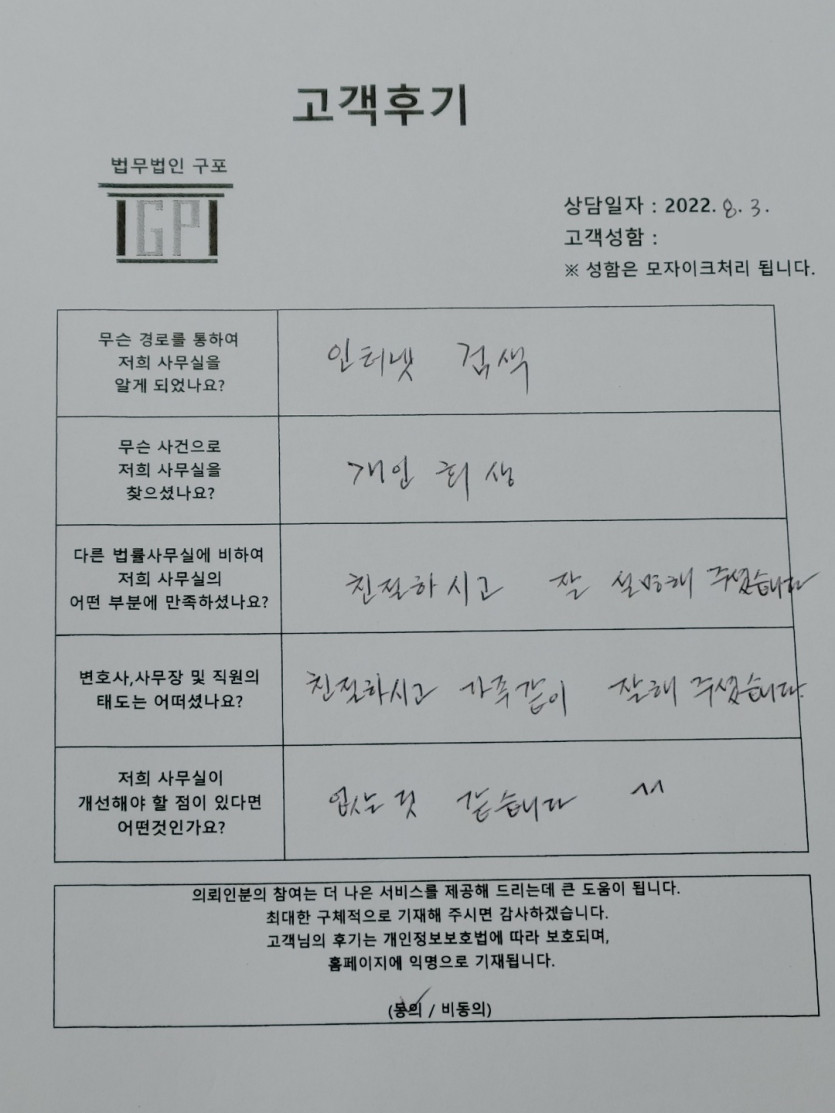 고객후기
법무법인 구포
GP
상담일자 : 2022. 8. 3.
고객성함 :
※ 성함은 모자이크처리 됩니다.
무슨 경로를 통하여
저희 사무실을
알게 되었나요?
인터넷 검색
무슨 사건으로
저희 사무실을
찾으셨나요?
개인회생
다른 법률사무실에 비하여
저희 사무실의
어떤 부분에 만족하셨나요?
친절하시고 잘 설명해 주셨습니다
변호사,사무장 및 직원의
태도는 어떠셨나요?
친절하시고 가족같이 잘해 주셨습니다.
저희 사무실이
개선해야 할 점이 있다면
어떤것인가요?
없는 것 같습니다 ^^
의뢰인분의 참여는 더 나은 서비스를 제공해 드리는데 큰 도움이 됩니다.
최대한 구체적으로 기재해 주시면 감사하겠습니다.
고객님의 후기는 개인정보보호법에 따라 보호되며,
홈페이지에 익명으로 기재됩니다.
(동의 / 비동의)